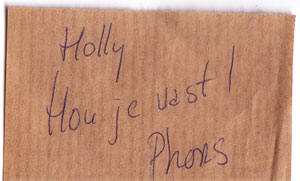 Holly
Hou je vast!
Phons